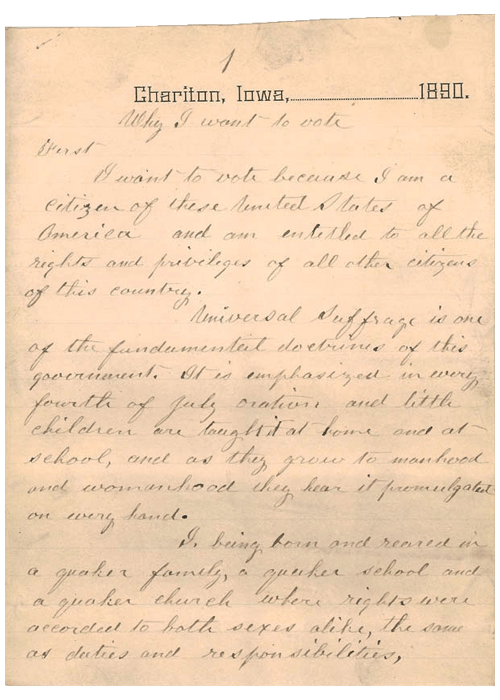 1
Chariton, Iowa, 1890.
Why I want to vote
First
I want to vote because I am a
citizen of these United States of
America and am entitled to all the
rights and privileges of all other citizens
of this country.
Universal Suffrage is one
of the fundamental doctrines of this
government. It is emphasized in every
fourth of july oration and little
children are taught it at home and at
school, and as they grow to manhood
and womanhood they hear it promulgated
on every hand.
I, being born and reared in
a quaker family, a quaker school and
a quaker church where rights were
accorded to both sexes alike, the same
as duties and responsibilities,